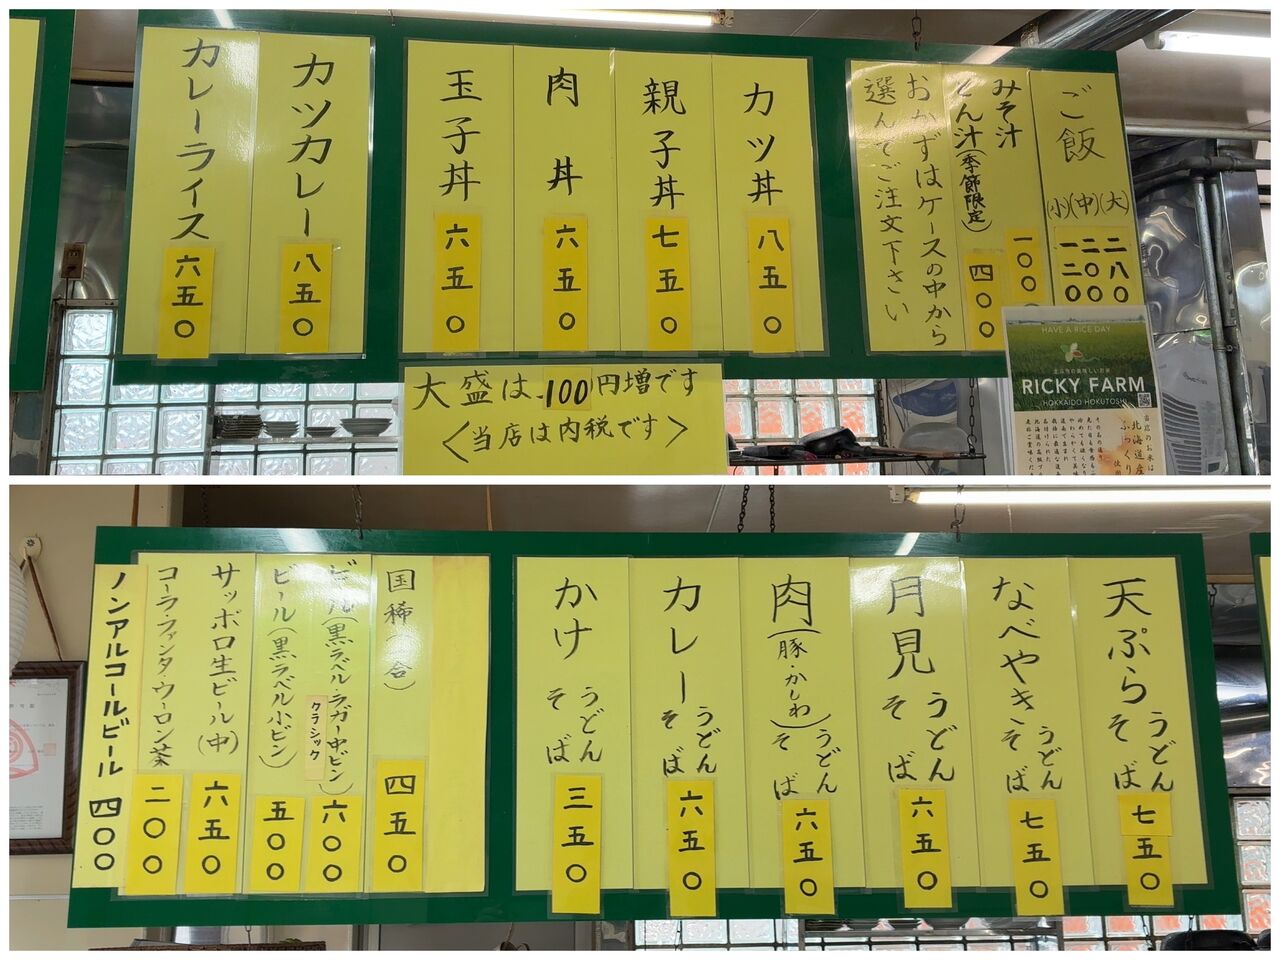 ご飯 (小)(中)(大) 一二〇 二〇〇 二八〇
みそ汁 一〇〇
とん汁(季節限定) 四〇〇
おかずはケースの中から
選んでご注文下さい
カツ丼 八五〇
親子丼 七五〇
肉丼 六五〇
玉子丼 六五〇
カツカレー 八五〇
カレーライス 六五〇
大盛は、100円増です
<当店は内税です>
HAVE A RICE DAY
RICKY FARM
HOKKAIDO HOKUTOSHI
当店のお米は
北海道産
ふっくり
天ぷら うどん そば 七五〇
なべやき うどん そば 七五〇
月見 うどん そば 六五〇
肉(豚・かしわ) うどん そば 六五〇
カレー うどん そば 六五〇
かけ うどん そば 三五〇
国稀(一合) 四五〇
ビール(黒ラベル・ラガー中ビン) 六〇〇
クラシック
ビール(黒ラベル小ビン) 五〇〇
サッポロ生ビール(中) 六五〇
コーラ・ファンタ・ウーロン茶 二〇〇
ノンアルコールビール 四〇〇